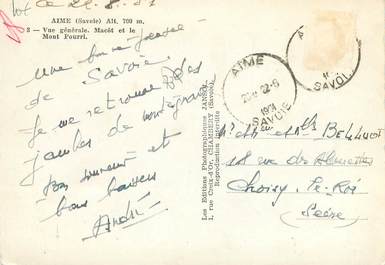 AIME (Savoie) Alt. 700 m.
3 — Vue générale. Macôt et le
Mont Pourri.
Une bonne pensée
de Savoie.
Je me retrouve des
jambes de montagnard
Bon souvenir et
bons baisers
André
Les Editions Photographiques JANSOL
1, rue Croix-d'Or, CHAMBERY (Savoie)
Reproduction interdite
AIME
22-8
1951
SAVOIE
AIME
SAVOIE
BELLUOT
rue des
Choisy-le-Roi
(Seine)